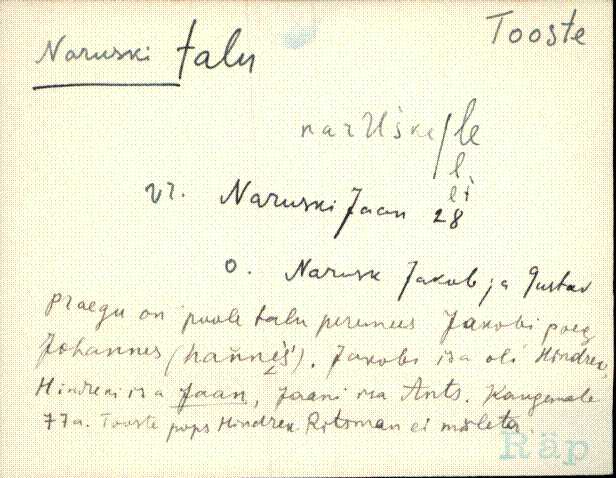 Naruski talu
Tooste
narUske/le
l
li
vr. Naruski Jaan 28
o. Narusk Jakob ja Gustav
Praegu on poole talu peremees Jakobi poeg
Johannes (hannès). Jakobi isa oli Hindrek,
Hindreki isa Jaan, Jaani isa Ants. Kaugemale
77a. Tooste pops Hindrek Ritsman ei mäleta.
Räp